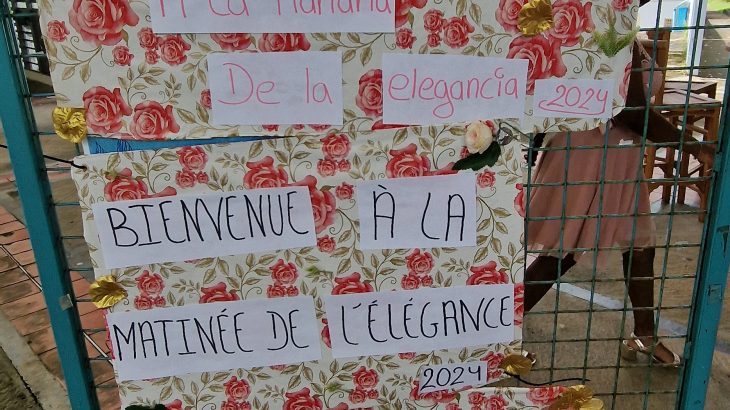 A La Mañana
De la elegancia 2024
BIENVENUE À LA
MATINÉE DE L'ÉLÉGANCE
2024